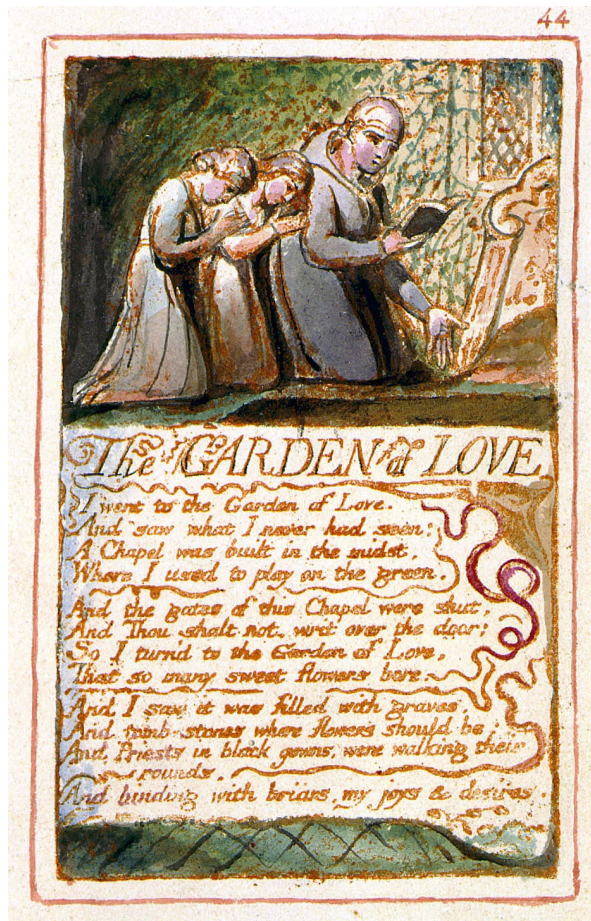 44
The GARDEN of LOVE
I went to the Garden of Love.
And saw what I never had seen:
A Chapel was built in the midst,
Where I used to play on the green.
And the gates of this Chapel were shut,
And Thou shalt not. writ over the door;
So I turn'd to the Garden of Love,
That so many sweet flowers bore.
And I saw it was filled with graves,
And tomb-stones where flowers should be:
And Priests in black gowns, were walking their
rounds,
And binding with briars, my joys & desires.